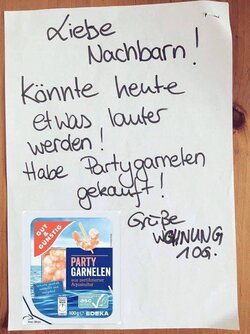 Liebe
Nachbarn!
Könnte heute
etwas lauter
werden!
Habe Partygarnelen
gekauft!
Grüße
WOHNUNG
10G.
GUT &
GÜNSTIG
PARTY
GARNELEN
aus zertifizierter
Aquakultur
asc
100g e
EDEKA